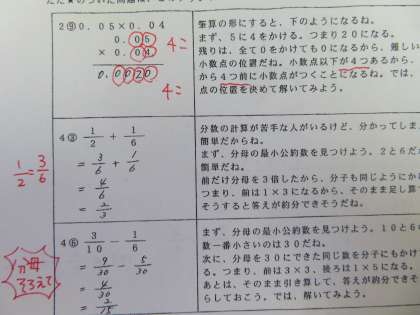 2⑨0.05×0.04
0.05
× 0.04
0.0020
4こ
4こ
筆算の形にすると、下のようになるね。
まず、5に4をかける。つまり20になる。
残りは、全て0をかけても0になるから、難しい
小数点の位置だね。小数点以下が4つあるから、
から4つ前に小数点がつくことになるね。では、
点の位置を決めて解いてみよう。
4③ 1/2 + 1/6
= 3/6 + 1/6
= 4/6
= 2/3
1/2 = 3/6
分数の計算が苦手な人がいるけど、分かってしま
簡単だからね。
まず、分母の最小公約数を見つけよう。2と6だ
簡単だね。
前だけ分母を3倍したから、分子も同じようにか
つまり、前は1×3になるから、そのまま足し算
そうすると答えが約分できそうだね。
4⑥ 3/10 − 1/6
= 9/30 − 5/30
= 4/30
= 2/15
分母
そろえて
まず、分母の最小公約数を見つけよう。10と6
数一番小さいのは30だね。
次に、分母を30にできた同じ数を分子にもかけ
る。つまり、前は3×3、後ろは1×5になる。
あとは、そのまま引き算して、答えが約分できそ
らしておこう。では、解いてみよう。